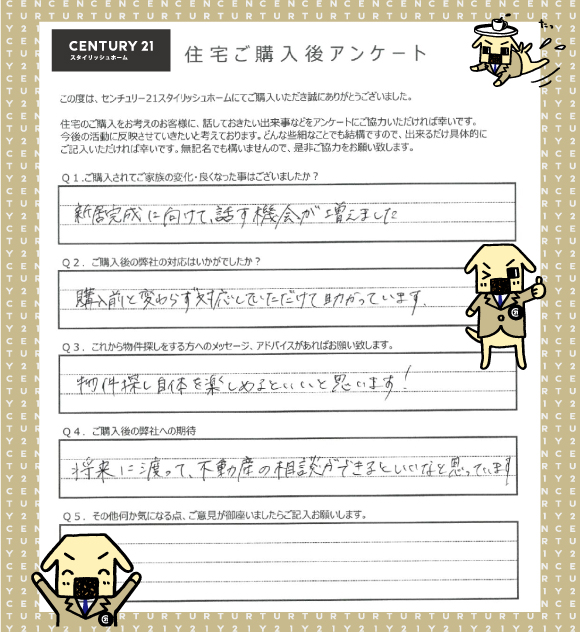 CENTURY 21
スタイリッシュホーム
住宅ご購入後アンケート
この度は、センチュリー21スタイリッシュホームにてご購入いただき誠にありがとうございました。
住宅のご購入をお考えのお客様に、話しておきたい出来事などをアンケートにご協力いただければ幸いです。
今後の活動に反映させていきたいと考えております。どんな些細なことでも結構ですので、出来るだけ具体的に
ご記入いただければ幸いです。無記名でも構いませんので、是非ご協力をお願い致します。
Q1.ご購入されてご家族の変化・良くなった事はございましたか？
新居完成に向けて、話す機会が増えました
Q2．ご購入後の弊社の対応はいかがでしたか？
購入前と変わらず対応していただけて助かっています.
Q3．これから物件探しをする方へのメッセージ、アドバイスがあればお願い致します。
物件探し自体を楽しめるといいと思います！
Q4．ご購入後の弊社への期待
将来に渡って、不動産の相談ができるといいなと思っています
Q5．その他何か気になる点、ご意見が御座いましたらご記入お願いします。